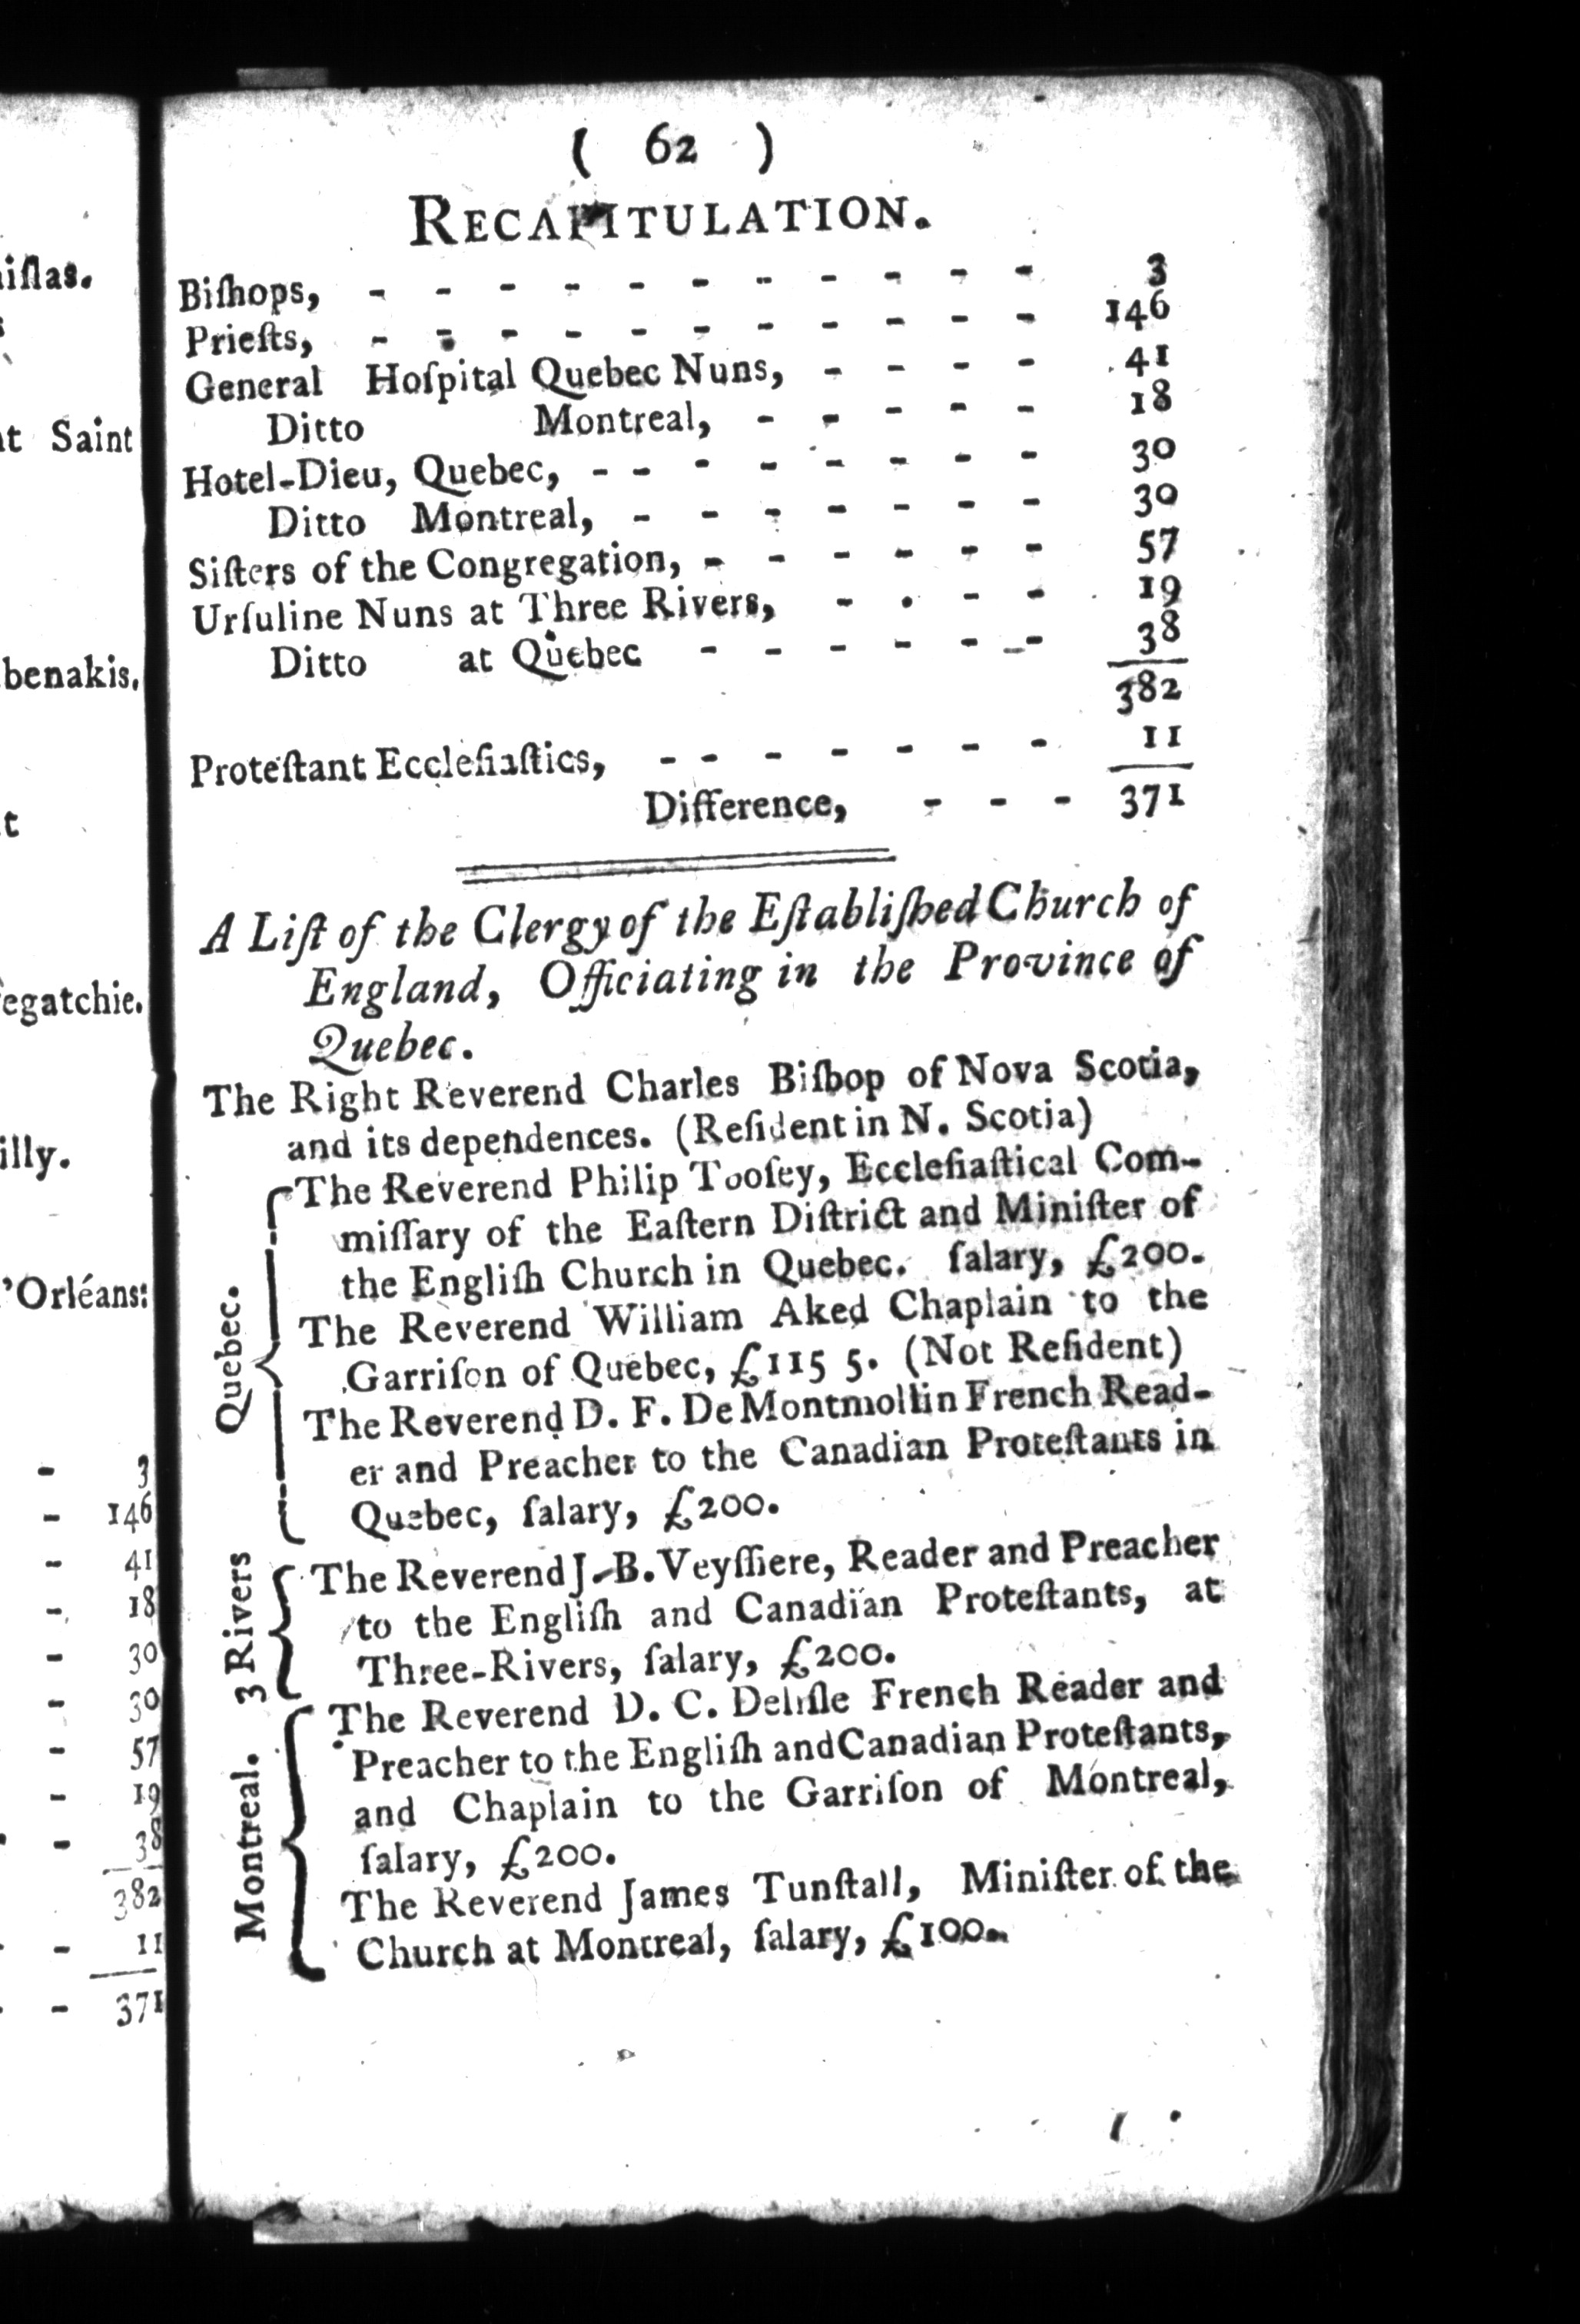 iſlas.
t Saint
benakis.
egatchie.
illy.
'Orléans:
- 3
- 146
- 41
- 18
- 30
- 30
- 57
- 19
- 38
382
- 11
- 371
( 62 )
RECAPITULATION.
Biſhops, - - - - - - - - - - - 3
Prieſts, - - - - - - - - - - - 146
General Hoſpital Quebec Nuns, - - - - 41
Ditto Montreal, - - - - - 18
Hotel-Dieu, Quebec, - - - - - - - - 30
Ditto Montreal, - - - - - - - 30
Siſters of the Congregation, - - - - - - 57
Urſuline Nuns at Three Rivers, - - - - 19
Ditto at Quebec - - - - - - 38
382
Proteſtant Eccleſiaſtics, - - - - - - - 11
Difference, - - - 371
A Liſt of the Clergy of the Eſtabliſhed Church of
England, Officiating in the Province of
Quebec.
The Right Reverend Charles Biſhop of Nova Scotia,
and its dependences. (Reſident in N. Scotia)
Quebec.
The Reverend Philip Tooſey, Eccleſiaſtical Com-
miſſary of the Eaſtern Diſtrict and Miniſter of
the Engliſh Church in Quebec. ſalary, £200.
The Reverend William Aked Chaplain to the
Garriſon of Quebec, £115 5. (Not Reſident)
The Reverend D. F. De Montmollin French Read-
er and Preacher to the Canadian Proteſtants in
Quebec, ſalary, £200.
3 Rivers
The Reverend J. B. Veyſſiere, Reader and Preacher
to the Engliſh and Canadian Proteſtants, at
Three-Rivers, ſalary, £200.
Montreal.
The Reverend D. C. Deliſle French Reader and
Preacher to the Engliſh and Canadian Proteſtants,
and Chaplain to the Garriſon of Montreal,
ſalary, £200.
The Reverend James Tunſtall, Miniſter of the
Church at Montreal, ſalary, £100.